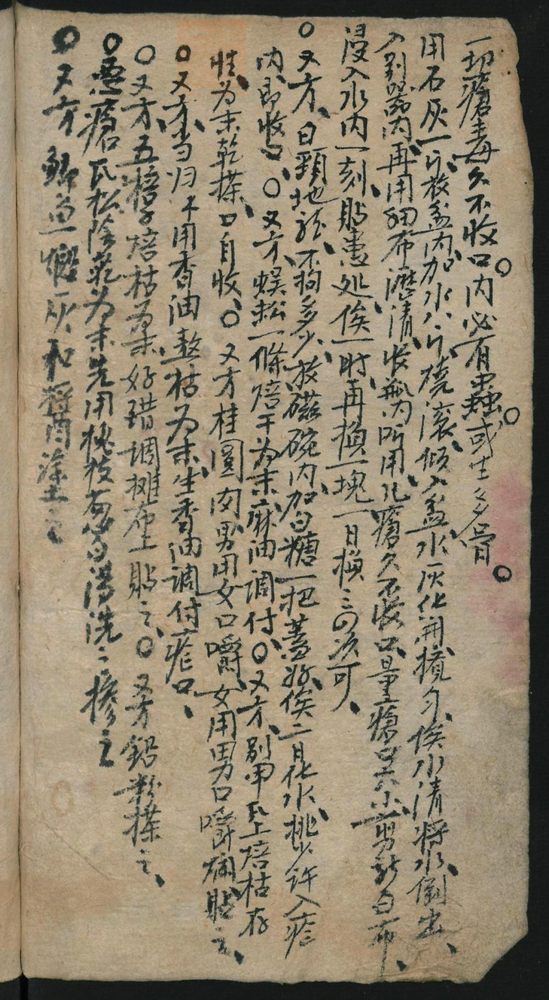 一切瘡毒久不收口。内必有虫。或生多骨。
用石灰一斤放盆内加水八斤燒滾傾入盆水灰化開攪勻俟水清將水倒出、
入別器内再用細布瀝清收瓶内听用凡瘡久不收口量瘡口大小剪新白布、
浸入水内一刻貼患処俟一时再換一塊一日換三四次可、
〇又方、白頸地龍不拘多少放磁碗内加白糖一把蓋好俟二日化水挑少許入瘡
内即收口、〇又方蜈蚣一條焙干为末麻油調付〇又方、別甲瓦上焙枯存
性为末乾搽口自收、〇又方桂圓肉男用女口嚼女用男口嚼爛貼之、
〇又方当归不用香油熬枯为末生香油調付瘡口、
〇又方、五棓子焙枯为末好醋調攤布上貼之、〇又方鉛粉搽之、
〇惡瘡瓦松陰乾为末先用槐枝葱白湯洗之摻之
〇又方鯽魚一個灰和醬内塗之